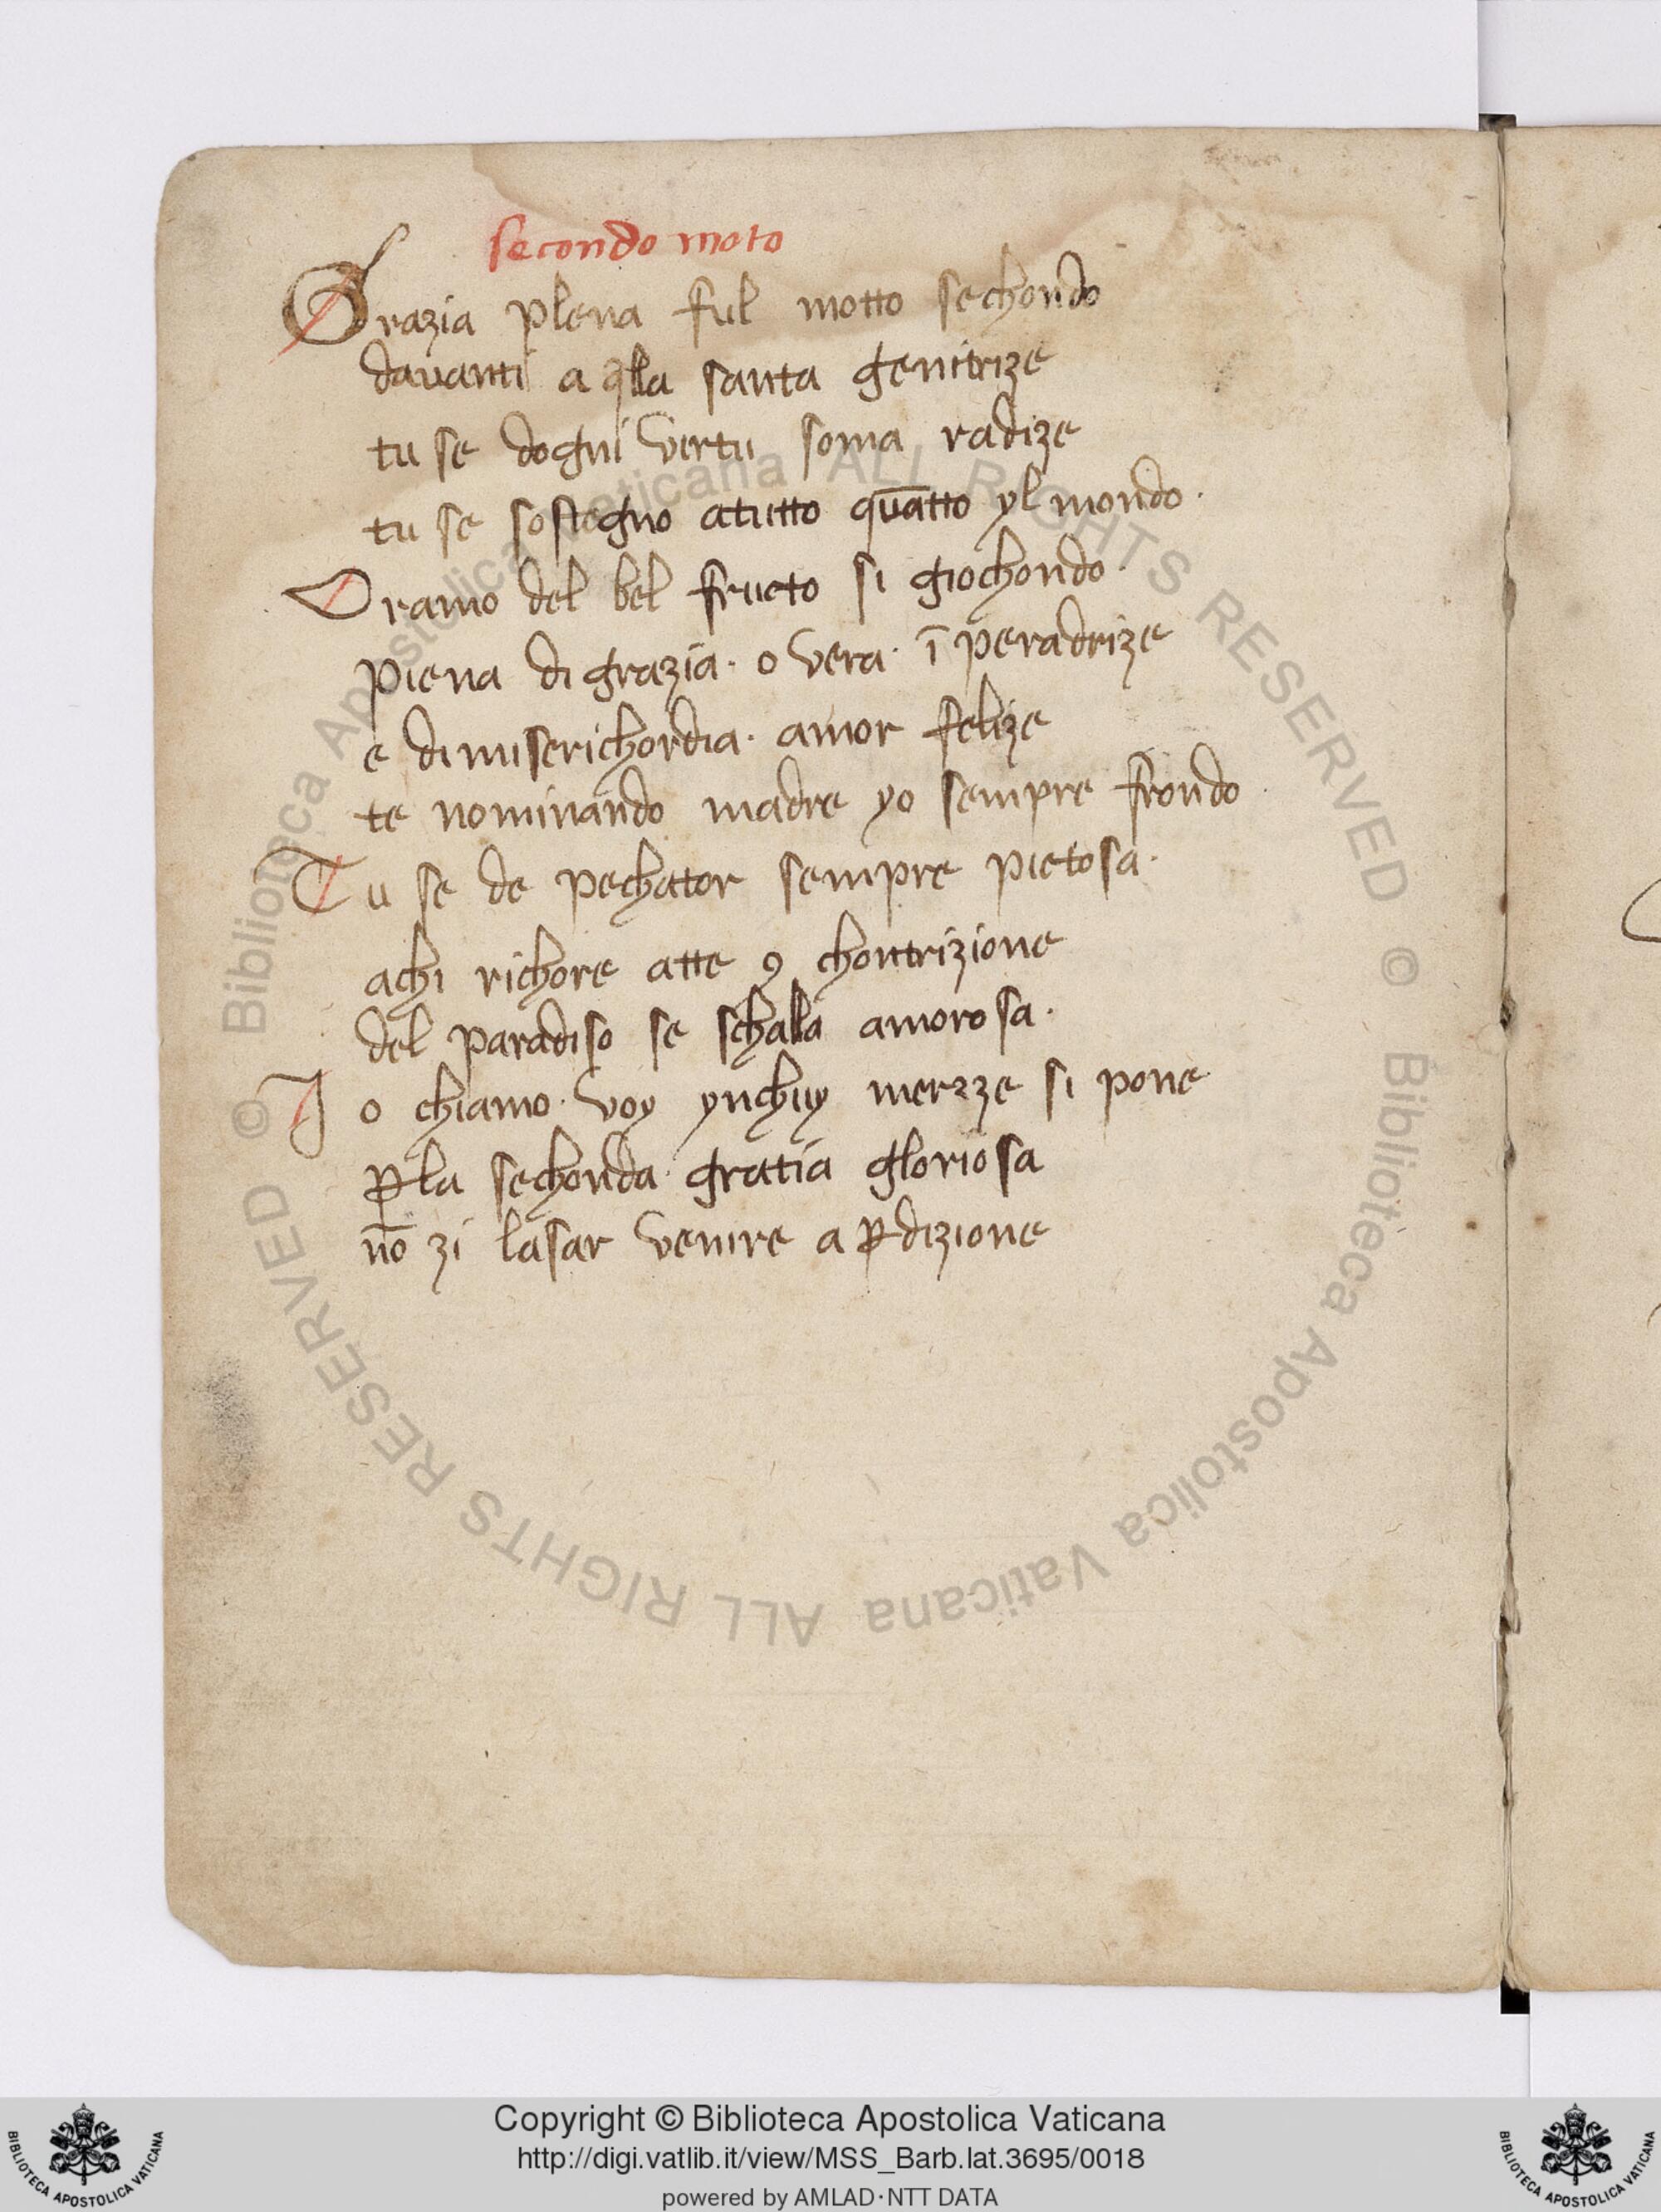 secondo moto
Grazia plena ful motto sechondo
davanti a qlla santa genitrize
tu se dogni vertu soma radize
tu se sostegno atutto quātto yl mondo ·
O ramo del bel fructo si giochondo ·
piena di grazia · o vera · ī peradrize
e di miserichordia · amor felize
te nominando madre yo sempre frondo ·
Tu se de pechator sempre pietosa ·
achi richore atte ꝯ chontrizione
del paradiso se schalla amorosa ·
Jo chiamo · voy ynchuy merzze si pone
ꝑla sechonda gratia gloriosa
nō zi lasar venire a ꝑdizione
© Biblioteca Apostolica Vaticana ALL RIGHTS RESERVED © Biblioteca Apostolica Vaticana ALL RIGHTS RESERVED
Copyright © Biblioteca Apostolica Vaticana
http://digi.vatlib.it/view/MSS_Barb.lat.3695/0018
powered by AMLAD·NTT DATA
BIBLIOTECA APOSTOLICA VATICANA
BIBLIOTECA APOSTOLICA VATICANA